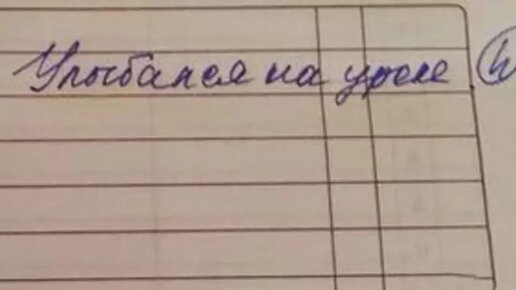 Улыбался на уроке